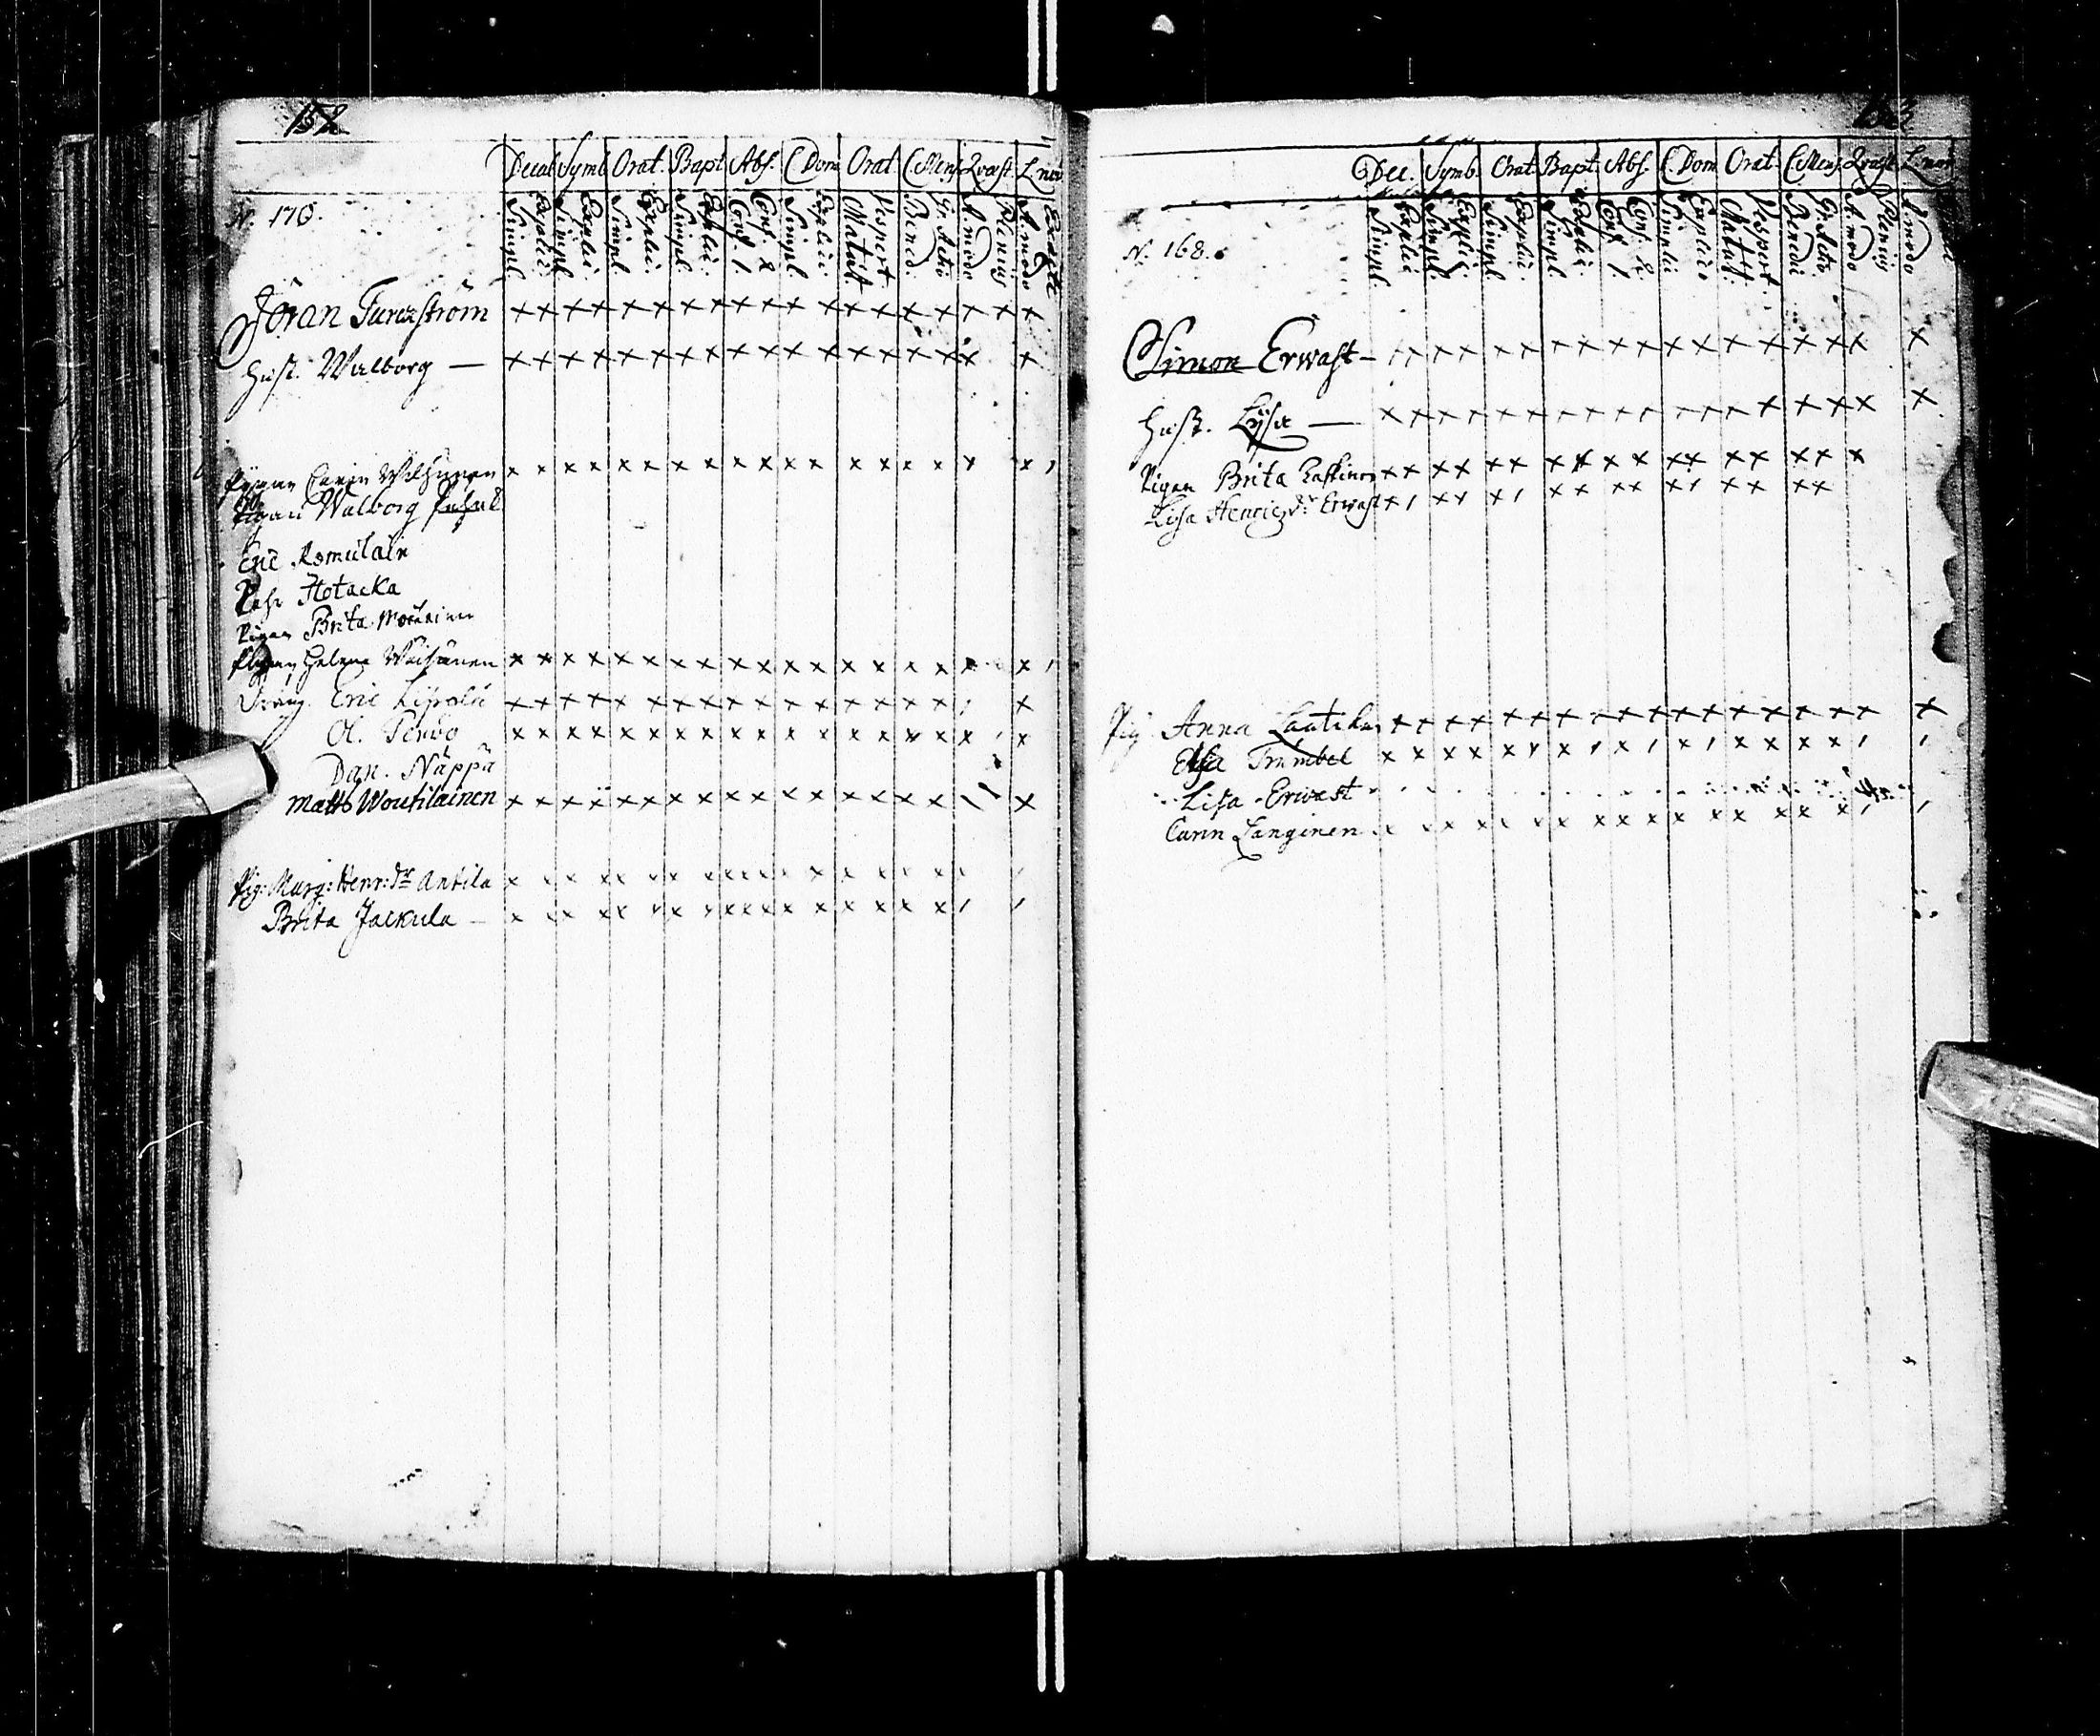 158
Decal Symb Orat. Bapt Abs. C Dom Orat C Mens Qvæst. L nov
N. 170.
Simpl. Explic. Simpl. Explic. Simpl. Explic. Simpl. Explic. Conf. 1. Conf. 2 Simpl. Explic Matut. Vespert Bened. Gr. Actio A. modo Plenius A. modo Exacte
Jöran Turczström x x x x x x x x x x x x x x x x x x x
Hust. Walborg — x x x x x x x x x x x x x x x x x x
Pigan Carin Wilhunen x x x x x x x x x x x x x x x x x x
Pigan Walborg
Eric Romulain
Pehr Hotacka
Pigan Brita
Pigan Helena Wäisänen x x x x x x x x x x x x x x x x x x
Dräng. Eric Lipola x x x x x x x x x x x x x x x x x
Ol. Tervo x x x x x x x x x x x x x x x x x x
Dan. Näppä
Matts Woutilainen x x x x x x x x x x x x x x x x x
Pig: Marg: Henr: dr Antila x x x x x x x x x x x x x x x x
Brita Jackula — x x x x x x x x x x x x x x x x
Dec. Symb. Orat. Bapt. Abs. C Dom Orat. C Mens. Qvæst. L. nov
N. 168.
Simpl. Explic Simpl. Explic. Simpl. Explic. Simpl. Explic. Conf. 1. Conf. 2. Simplic Explicio Matut. Vespert. Benedic Gr. Actio A. modo Plenius A. modo
Simon Erwast — x x x x x x x x x x x x x x x x x x
Hust. Lijsa — x x x x x x x x x x x x x x x x x x
Pigan Brita x x x x x x x x x x x x x x x x x
Lisa Henricz dr Erwast x x x x x x x x x x x x x
Pig Anna x x x x x x x x x x x x x x x x x x
Elsa Trumbel x x x x x x x x x x x x x
Lisa Erwast
Carin Langinen x x x x x x x x x x x x x x x